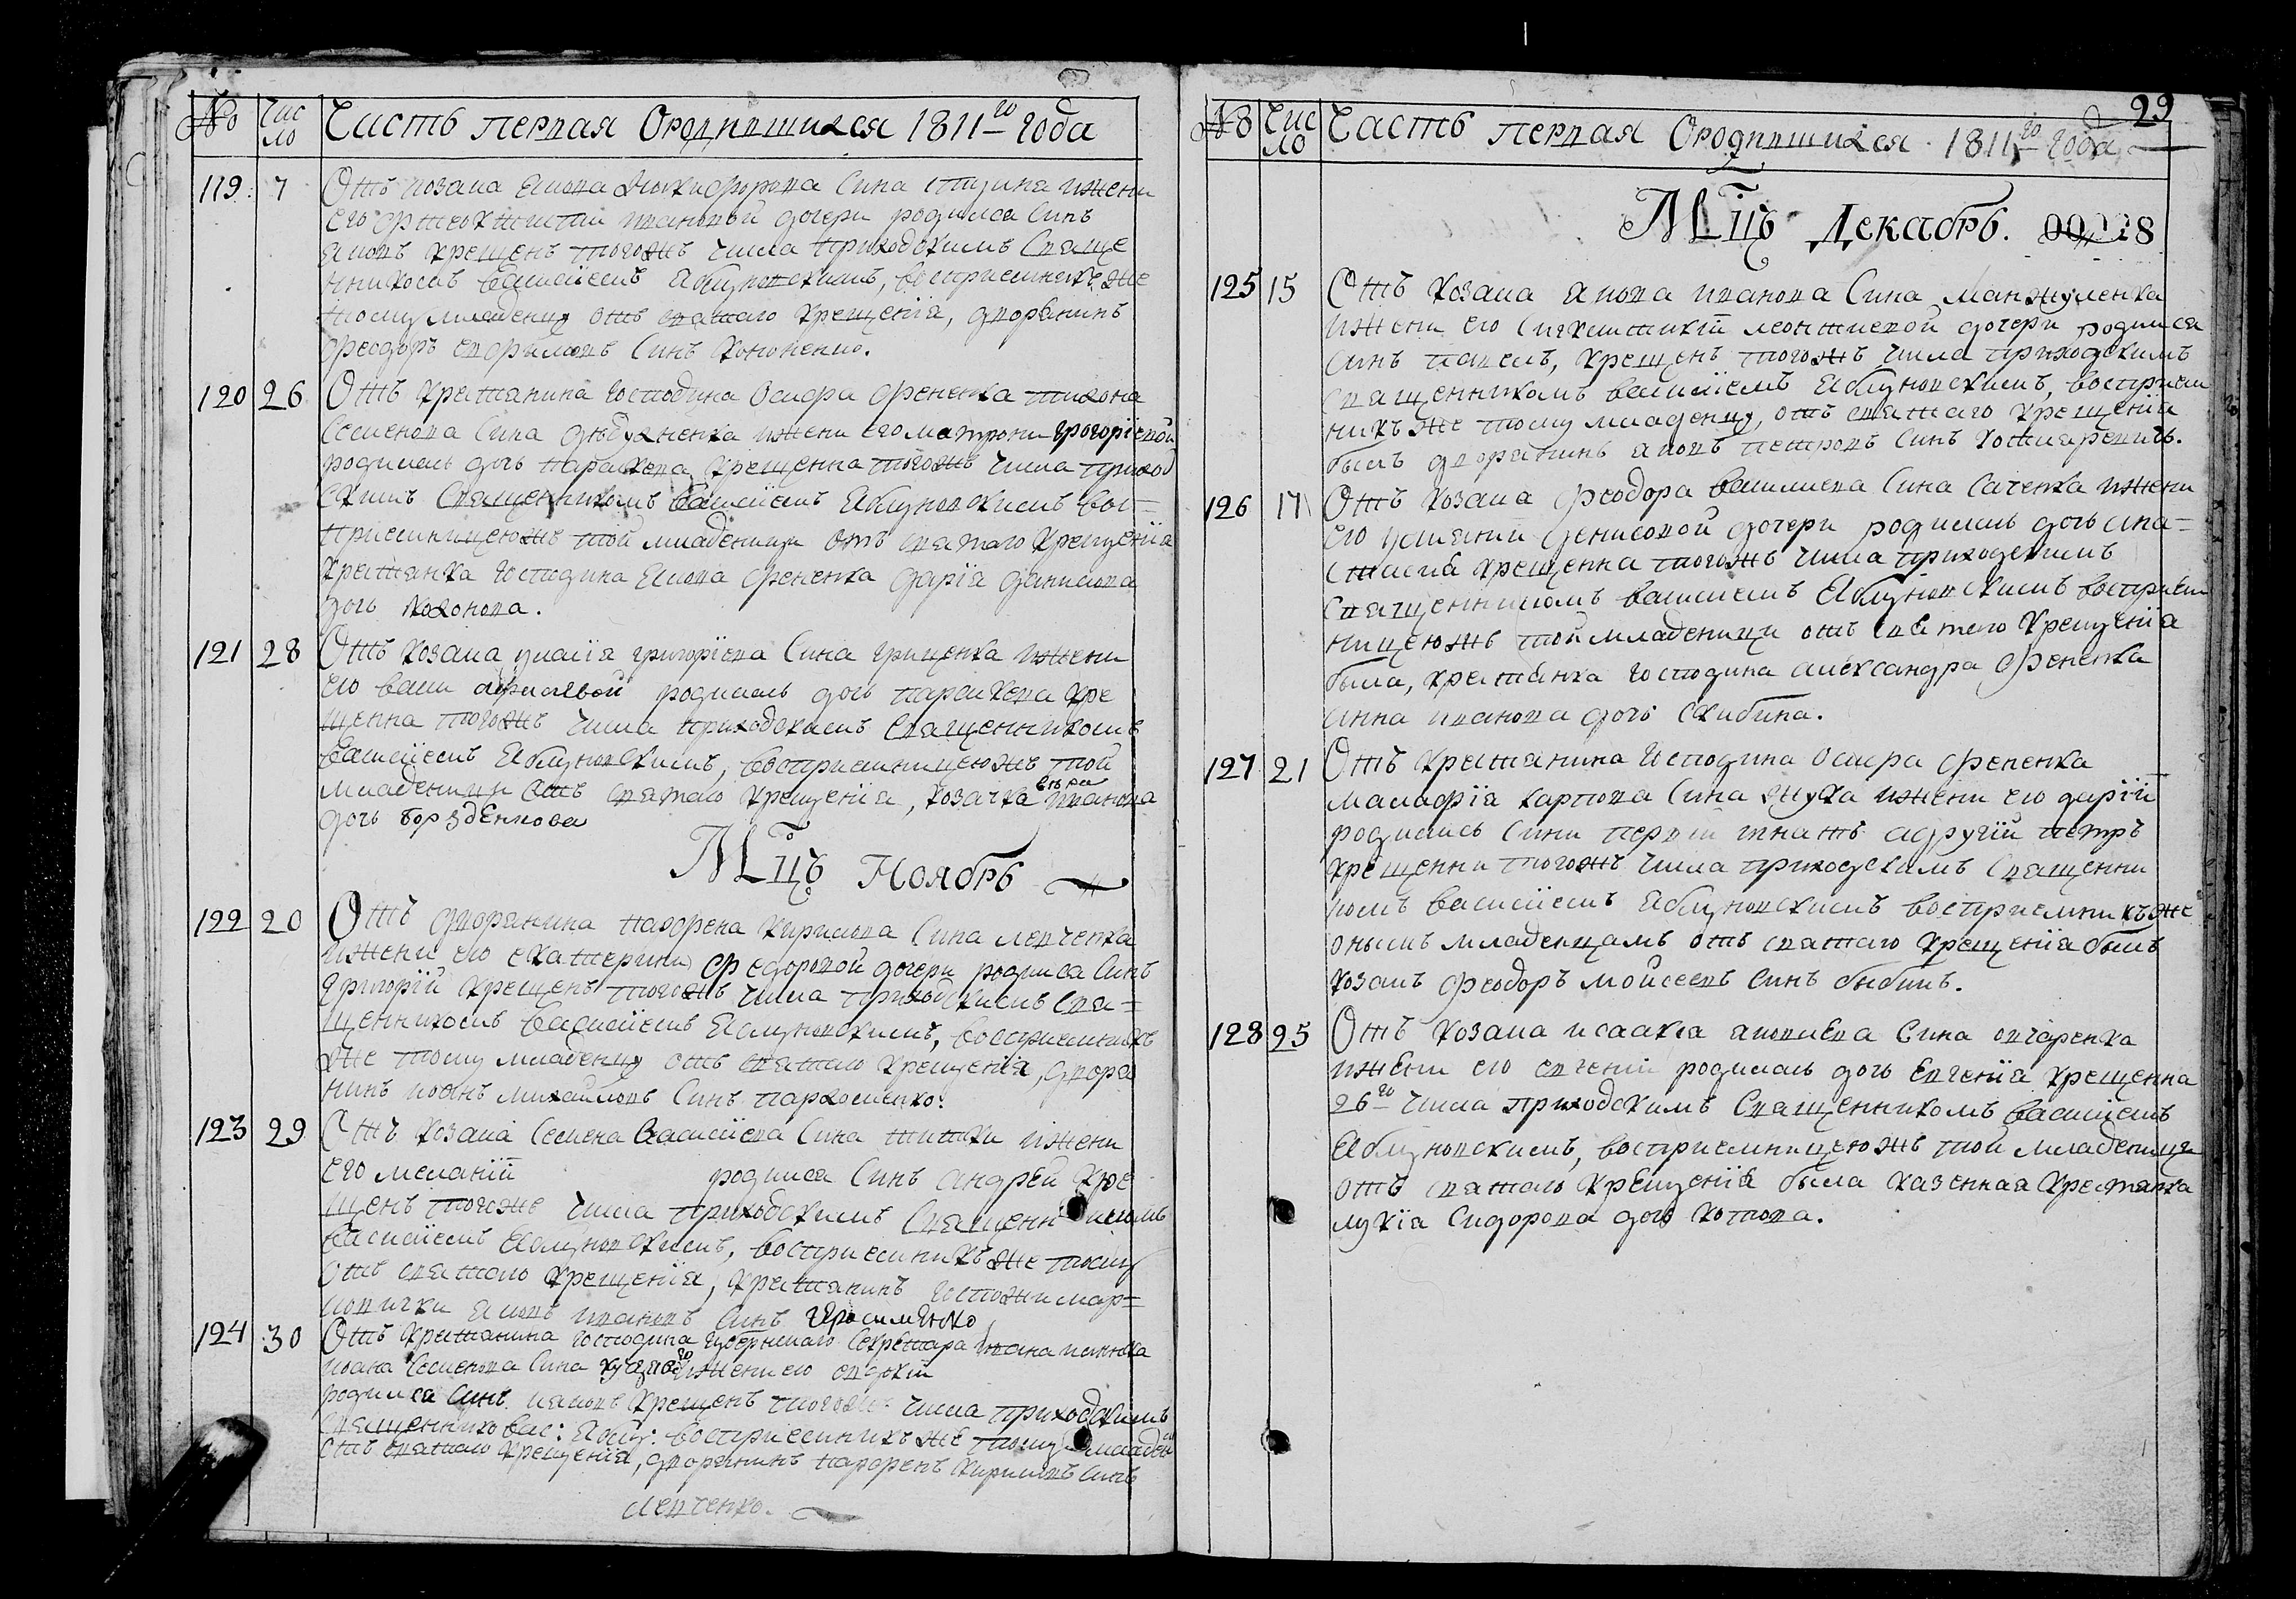 № Число Часть первая Ородившихся 1811го года
119 7 Отъ козака якова никифорова сина
его иванової дочери родился синъ
яковъ крещенъ тогожъ числа приходскимъ свяще
нникомъ василіемъ яблуновскимъ, восприемникъ же
тому младенцу отъ святаго крещенія, дворянинъ
феодоръ ефримовъ синъ кононенко.
120 26 Отъ крестянина господина осифа фененка тихона
семенова сина ижени его матрони григоріевой
родилась дочь параскева крещенна тогожъ числа приход
скимъ священникомъ василіемъ яблуновскимъ вос=
приемницеюжъ той младеници отъ святаго крещенія
крестянка господина якова фененка дарія данилова
дочь
121 28 Отъ козака григоріева сина грищенка ижени
его родилась дочь параскева кре
щенна тогожъ числа приходскимъ священникомъ
василіемъ яблуновскимъ, восприемницеюжъ той
младеници отъ святаго крещенія, козачка вера иванова
дочь борзденкова
Мцъ Ноябрь
122 20 Отъ дворянина парфена кирилова сина левченка
ижени его екатерини федоровой дочери родился синъ
григорій крещенъ тогожъ числа приходскимъ свя=
щенникомъ василіемъ яблуновскимъ, восприемникъ
же тому младенцу отъ святаго крещенія дворя
нинъ иоанъ михайловъ синъ пархоменко.
123 29 Отъ козака семена василіева сина ижени
его меланій родился синъ андрей кре
щенъ тогоже числа приходскимъ священникомъ
василіемъ яблуновскимъ, восприемникъ же тому
отъ святаго крещенія, крестянинъ госпожи мар=
ковички яковъ ивановъ синъ герасименко
124 30 Отъ крестянина господина губернскаго секретара
иоана семенова сина ижени его евдокій
родился синъ иаковъ крещенъ тогожъ числа приходскимъ
священнико вас: яблу: восприемникъ же тому младен
отъ святаго крещенія, дворянинъ парфенъ кириловъ синъ
левченко.
№ Число Часть первая Ородившихся 1811го года 29
Мцъ Декабрь. 8
125 15 Отъ козака якова иванова сина манжуленка
ижени его леонтиевой дочери родился
синъ павелъ, крещенъ тогожъ числа приходскимъ
священникомъ василіемъ яблуновскимъ, восприем
никъ же тому младенцу, отъ святаго крещенія
былъ дворянинъ яковъ петровъ синъ котляревичъ.
126 17 Отъ козака феодора василиева сина саченка ижени
его уліяній денисовой дочери родилась дочь ана=
стасия крещенна тогожъ числа приходскимъ
священникомъ василиемъ яблуновскимъ восприем
ницеюжъ той младеници отъ святаго крещенія
была, крестянка господина александра фененка
анна иванова дочь скибина.
127 21 Отъ крестянина господина осифа фененка
малафія карпова сина жука ижени его дарій
родились сини первій игнатъ адругій петръ
крещенни тогожъ числа приходскимъ священни
комъ василіемъ яблуновскимъ восприемникъ же
онымъ младенцамъ отъ святаго крещенія былъ
козакъ феодоръ мойсеевъ синъ
128 25 Отъ козака исаакіа яковлева сина овчаренка
ижени его евгеній родилась дочь евгенія крещенна
26го числа приходскимъ священникомъ василіемъ
яблуновскимъ, восприемницеюжъ той младеници
отъ святаго крещенія была казенная крестянка
лукія сидорова дочь котова.